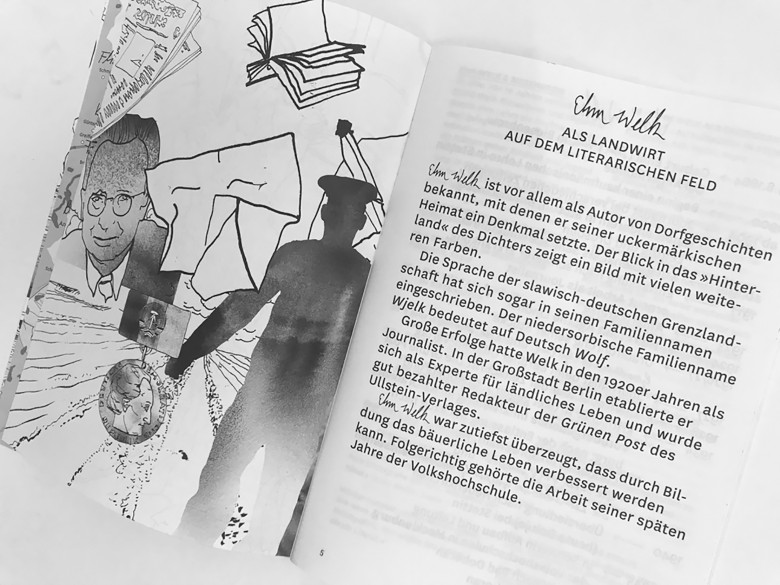 Ehm Welk
ALS LANDWIRT
AUF DEM LITERARISCHEN FELD
Ehm Welk ist vor allem als Autor von Dorfgeschichten
bekannt, mit denen er seiner uckermärkischen
Heimat ein Denkmal setzte. Der Blick in das »Hinter-
land« des Dichters zeigt ein Bild mit vielen weite-
ren Farben.
Die Sprache der slawisch-deutschen Grenzland-
schaft hat sich sogar in seinen Familiennamen
eingeschrieben. Der niedersorbische Familienname
Wjelk bedeutet auf Deutsch Wolf.
Große Erfolge hatte Welk in den 1920er Jahren als
Journalist. In der Großstadt Berlin etablierte er
sich als Experte für ländliches Leben und wurde
gut bezahlter Redakteur der Grünen Post des
Ullstein-Verlages.
Ehm Welk war zutiefst überzeugt, dass durch Bil-
dung das bäuerliche Leben verbessert werden
kann. Folgerichtig gehörte die Arbeit seiner späten
Jahre der Volkshochschule.
5